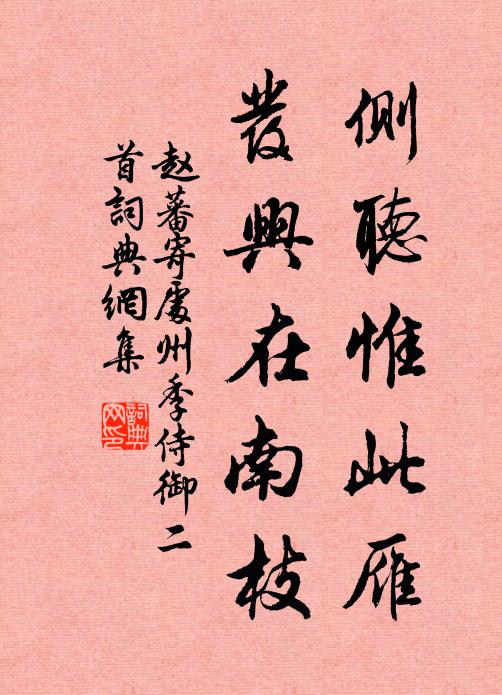 側聽惟此雁
發興在南枝
赵蕃寄處州季侍御二
首詞典網集
詞典網印